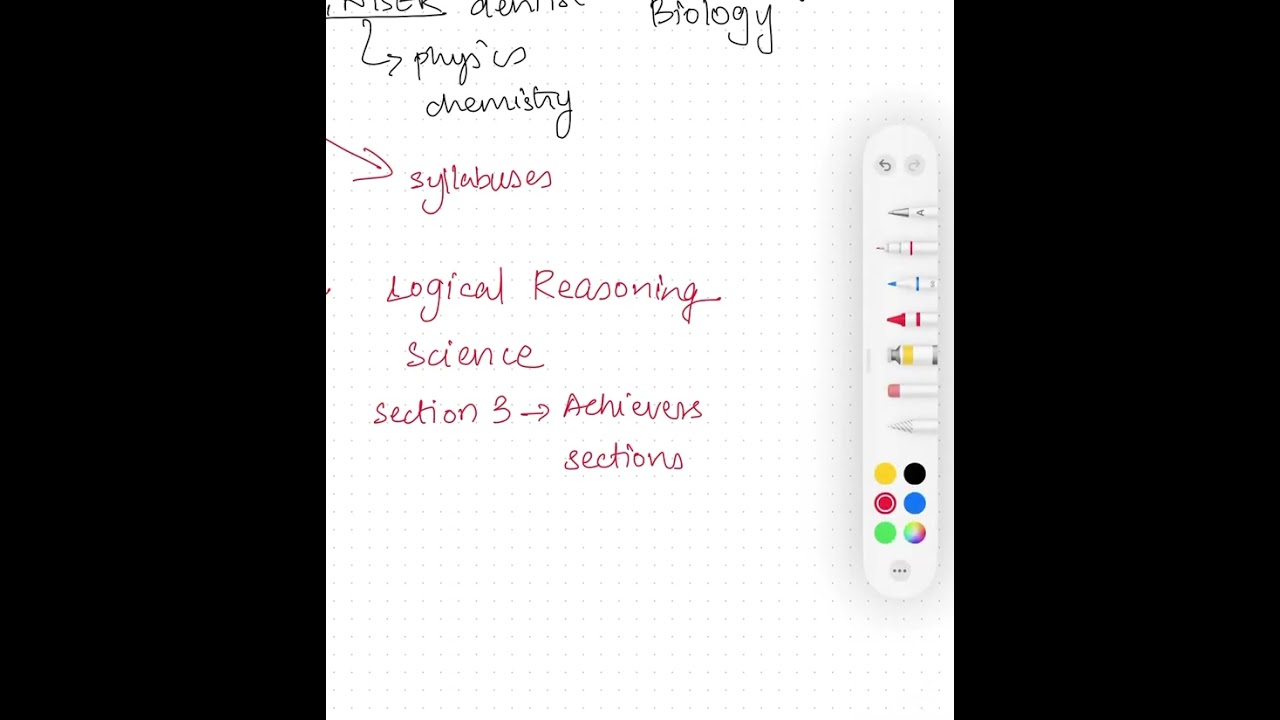 NISER dentist
Biology
physics
chemistry
syllabuses
Logical Reasoning
Science
Section 3 → Achievers
sections